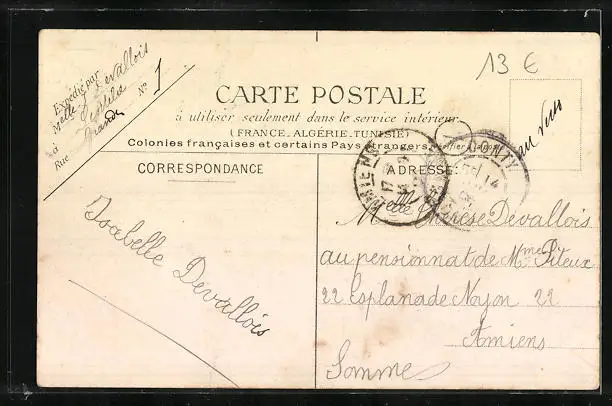 13 €
Expédié par
Melle Devallois
à
Rue Grande N° 1
CARTE POSTALE
à utiliser seulement dans le service intérieur.
(FRANCE_ALGÉRIE_TUNISIE)
Colonies françaises et certains Pays étrangers
au verso
CORRESPONDANCE
ADRESSE
Isabelle Devallois
Melle Thérèse Devallois
au pensionnat de Mme Piteux
22 Esplanade Noyon 22
Amiens
Somme